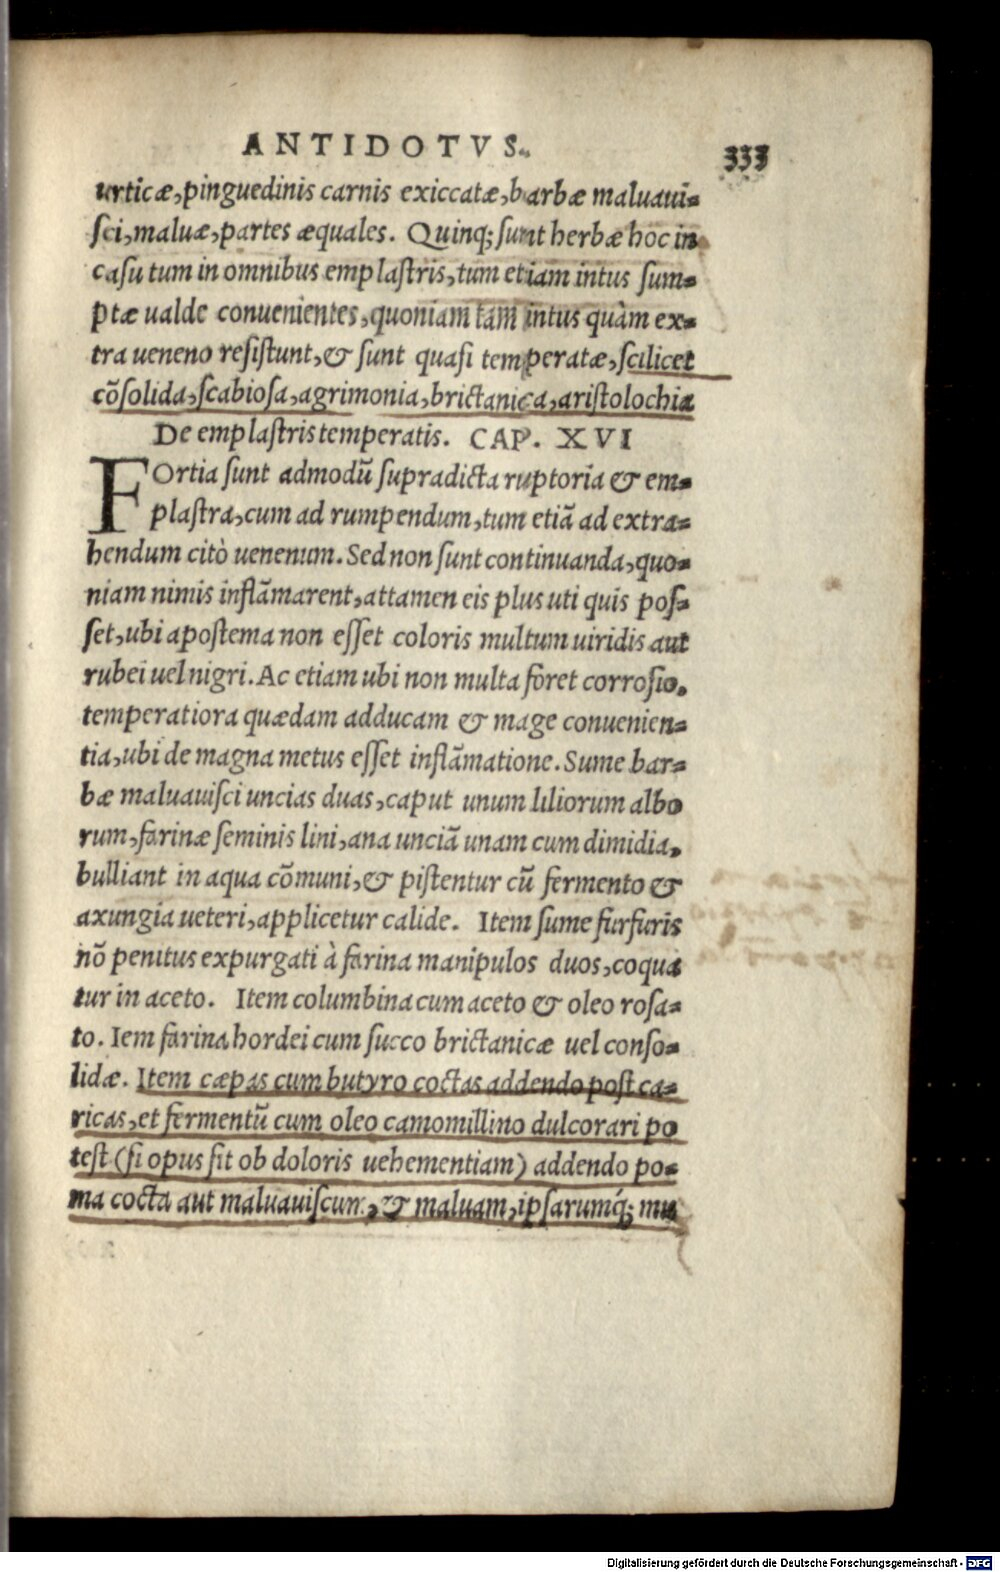 ANTIDOTVS.
333
urticæ, pinguedinis carnis exiccatæ, barbæ maluaui-
sci, maluæ, partes æquales. Quinq; sunt herbæ hoc in
casu tum in omnibus emplastris, tum etiam intus sum-
ptæ ualde conuenientes, quoniam tam intus quàm ex-
tra ueneno resistunt, & sunt quasi temperatæ, scilicet
cõsolida, scabiosa, agrimonia, brictanica, aristolochia
De emplastris temperatis. CAP. XVI
FOrtia sunt admodũ supradicta ruptoria & em-
plastra, cum ad rumpendum, tum etiã ad extra-
hendum citò uenenum. Sed non sunt continuanda, quo-
niam nimis inflãmarent, attamen eis plus uti quis pos-
set, ubi apostema non esset coloris multum uiridis aut
rubei uel nigri. Ac etiam ubi non multa foret corrosio.
temperatiora quædam adducam & mage conuenien-
tia, ubi de magna metus esset inflãmatione. Sume bar-
bæ maluauisci uncias duas, caput unum liliorum albo
rum, farinæ seminis lini, ana unciã unam cum dimidia,
bulliant in aqua cõmuni, & pistentur cũ fermento &
axungia ueteri, applicetur calide. Item sume furfuris
nõ penitus expurgati à farina manipulos duos, coqua
tur in aceto. Item columbina cum aceto & oleo rosa-
to. Iem farina hordei cum succo brictanicæ uel conso-
lidæ. Item cæpas cum butyro coctas addendo post ca-
ricas, et fermentũ cum oleo camomillino dulcorari po
test (si opus sit ob doloris uehementiam) addendo po-
ma cocta aut maluauiscum, & maluam, ipsarumq́; mu
Digitalisierung gefördert durch die Deutsche Forschungsgemeinschaft - DFG